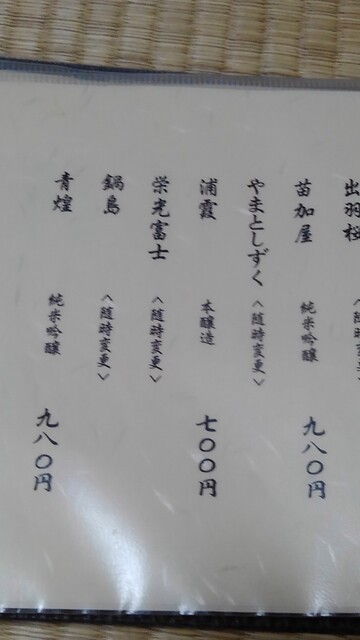 出羽桜
苗加屋 純米吟醸 九八〇円
やまとしずく <随時変更>
浦霞 本醸造 七〇〇円
栄光富士 <随時変更>
鍋島 <随時変更>
青煌 純米吟醸 九八〇円